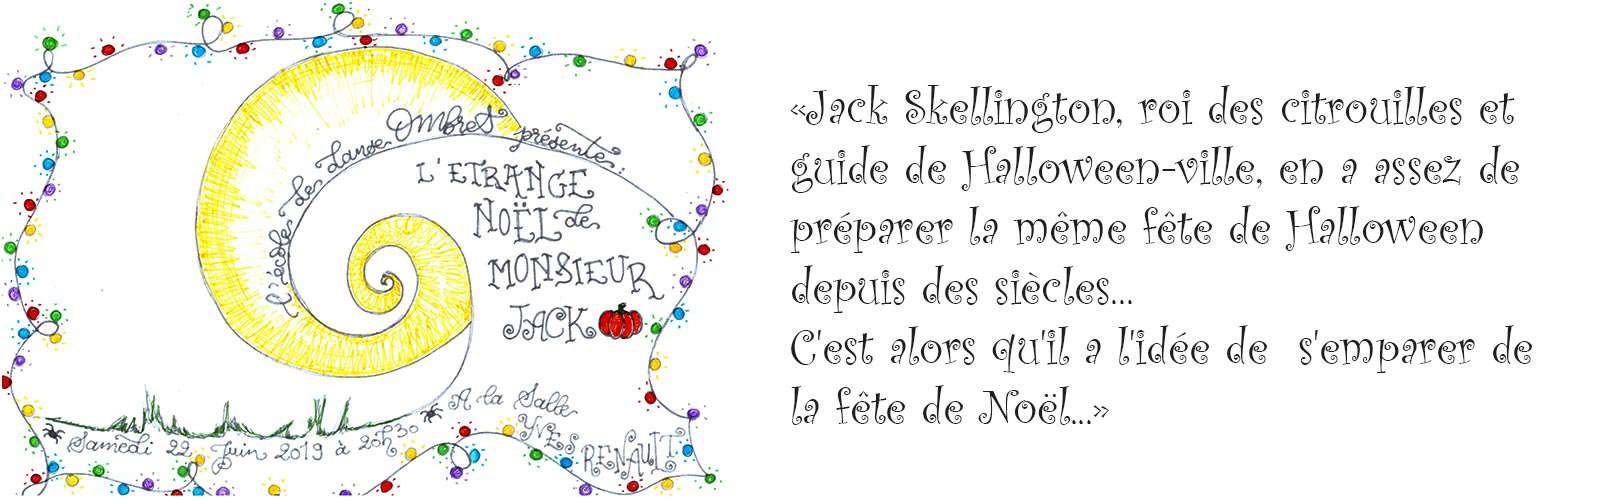 l'école de danse Ombres présente...
L'ETRANGE
NOËL de
MONSIEUR
JACK
A la Salle
YVES
RENAULT
Samedi 22 Juin 2019 à 20h30
«Jack Skellington, roi des citrouilles et
guide de Halloween-ville, en a assez de
préparer la même fête de Halloween
depuis des siècles...
C'est alors qu'il a l'idée de s'emparer de
la fête de Noël...»